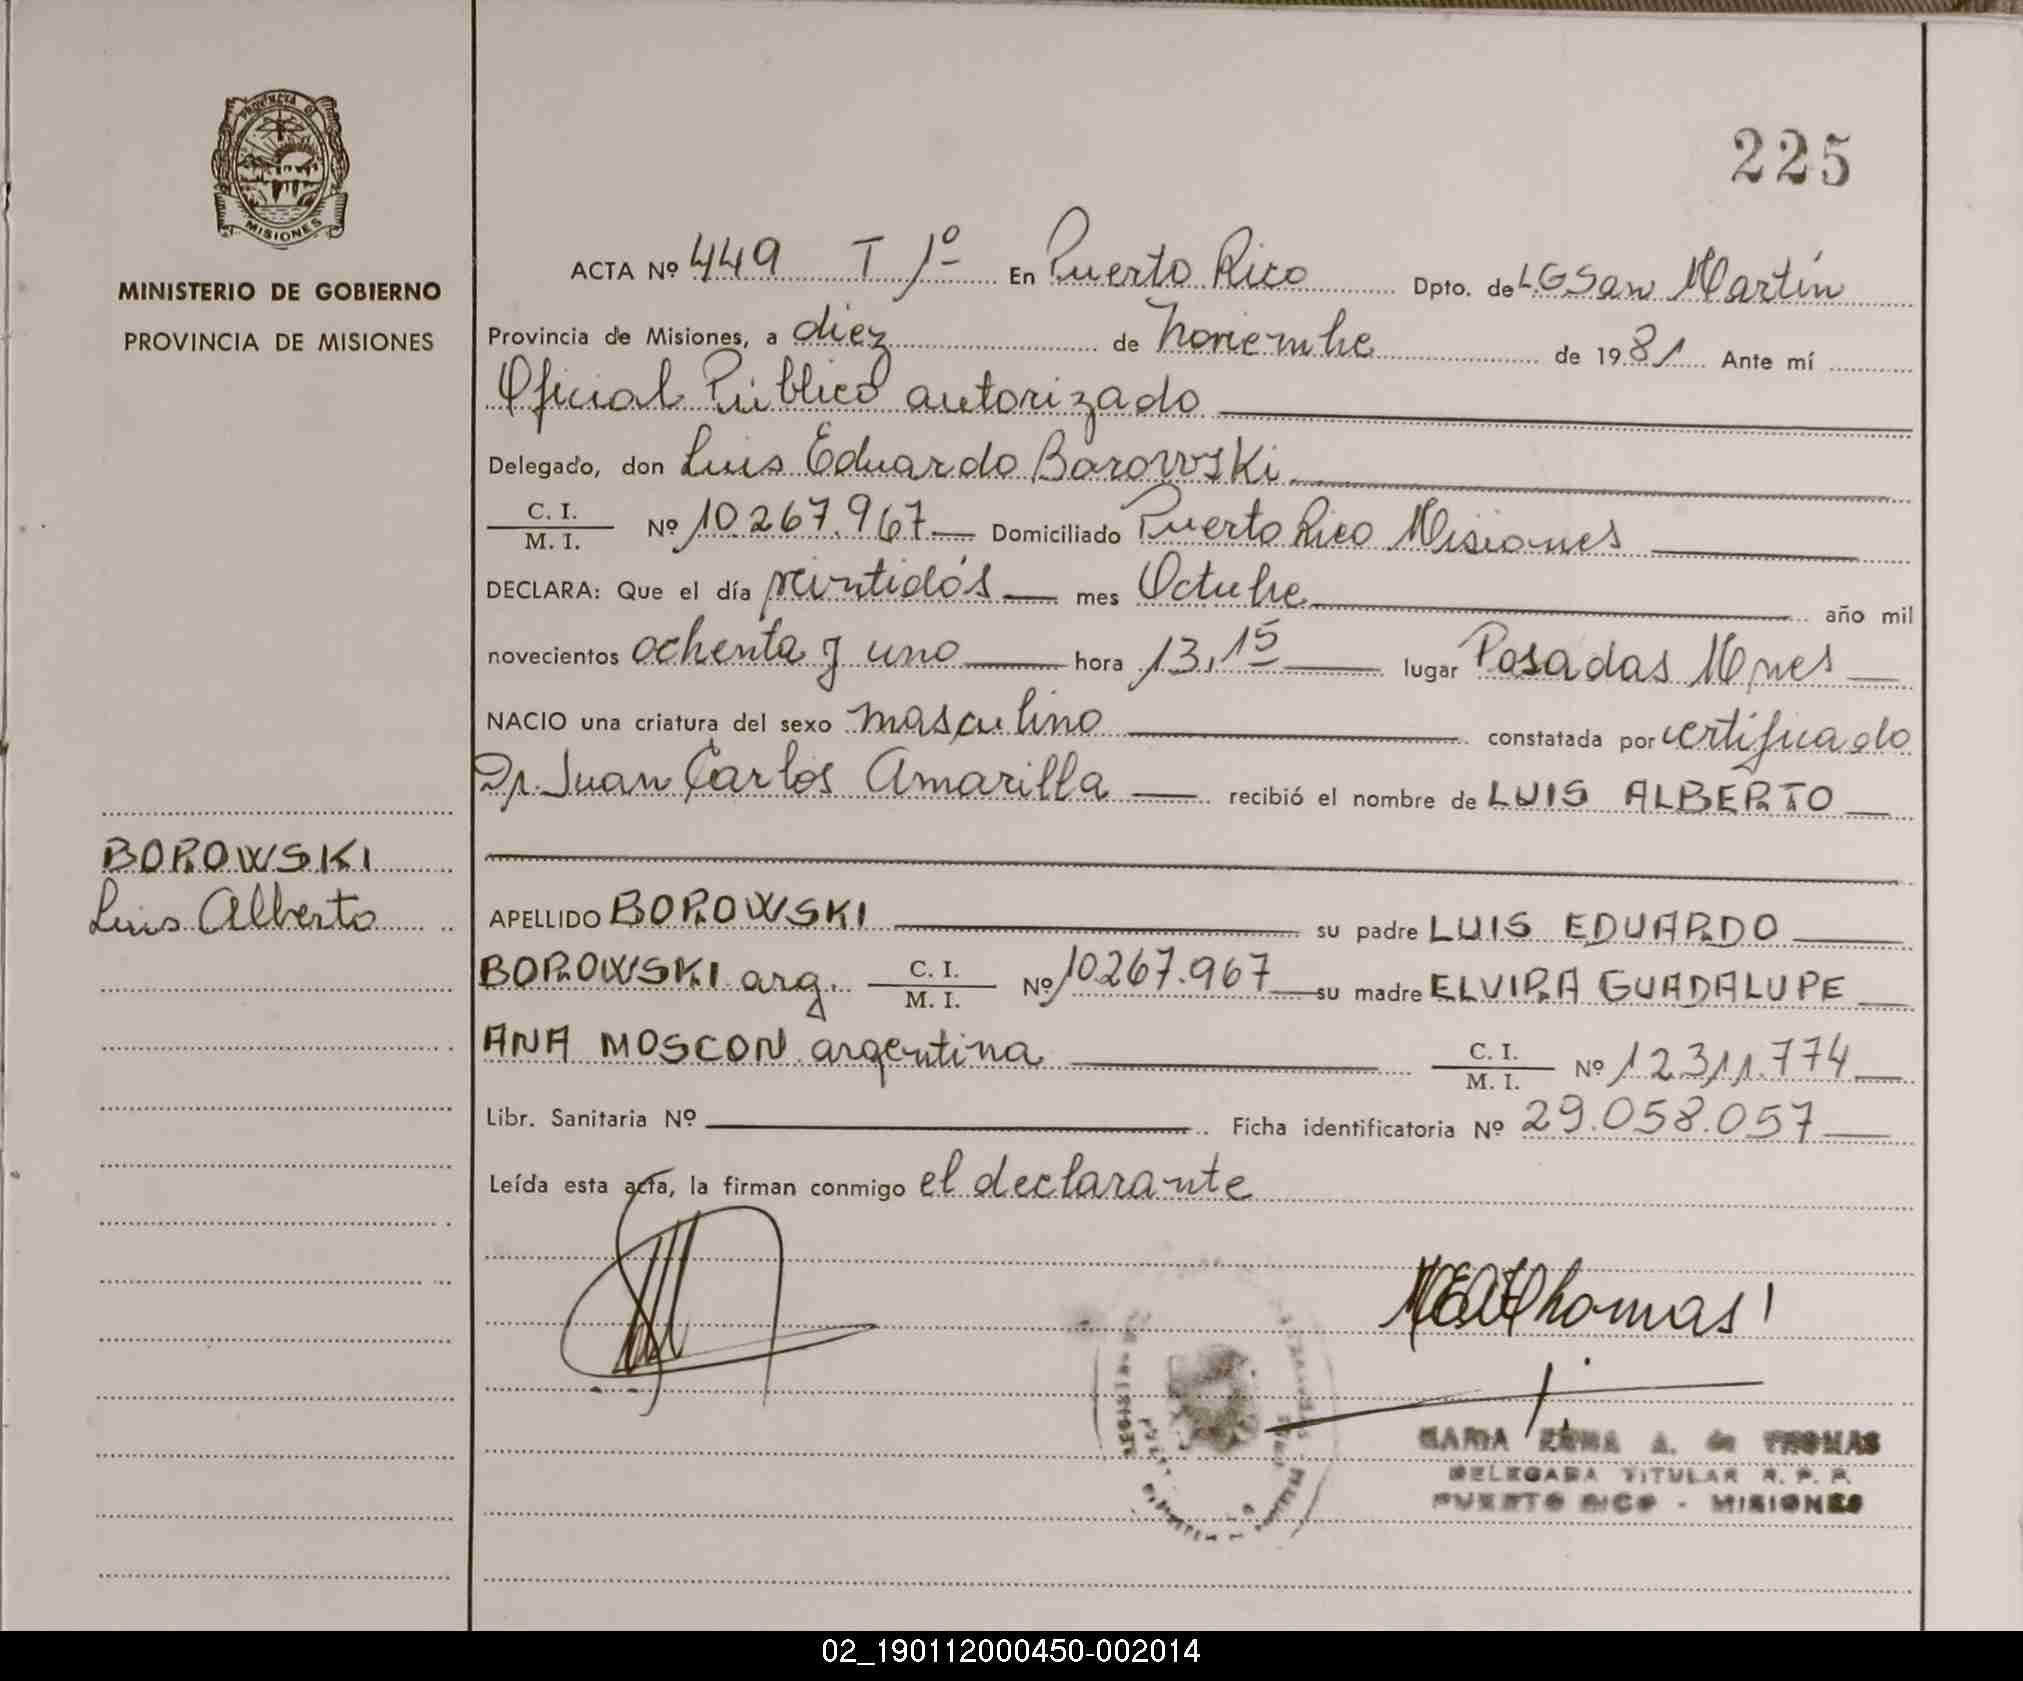 225
PROVINCIA DE
MISIONES
MINISTERIO DE GOBIERNO
PROVINCIA DE MISIONES
ACTA Nº 449 T 1º En Puerto Rico Dpto. de LGSan Martín
Provincia de Misiones, a diez de noviembre de 1981 Ante mí
Oficial Público autorizado
Delegado, don Luis Eduardo Borowski
C. I. / M. I. Nº 10.267.967 Domiciliado Puerto Rico Misiones
DECLARA: Que el día veintidós mes Octubre año mil
novecientos ochenta y uno hora 13,15 lugar Posadas Mnes
NACIO una criatura del sexo masculino constatada por certificado
Dr. Juan Carlos Amarilla recibió el nombre de LUIS ALBERTO
BOROWSKI
Luis Alberto
APELLIDO BOROWSKI su padre LUIS EDUARDO
BOROWSKI arg. C. I. / M. I. Nº 10267.967 su madre ELVIRA GUADALUPE
ANA MOSCON argentina C. I. / M. I. Nº 12.311.774
Libr. Sanitaria Nº Ficha identificatoria Nº 29.058.057
Leída esta acta, la firman conmigo el declarante
Thomas
MARIA EMMA A. de THOMAS
DELEGADA TITULAR R. P. P.
PUERTO RICO - MISIONES
02_190112000450-002014